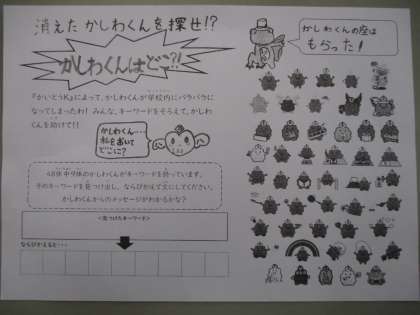 消えた かしわくんを 探せ!?
かしわくんはどこ?!
かしわくんの座は
もらった!
『かいとうK』によって、かしわくんが学校内にバラバラに
なってしまったわ! みんな、キーワードをそろえて、かしわ
くんを助けて!!
かしわくん…
私をおいて
どこに?
48体中9体のかしわくんがキーワードを持っています。
そのキーワードを見つけ出し、ならびかえて文にしてください。
かしわくんからのメッセージがわかるかな?
<見つけたキーワード>
ならびかえると…